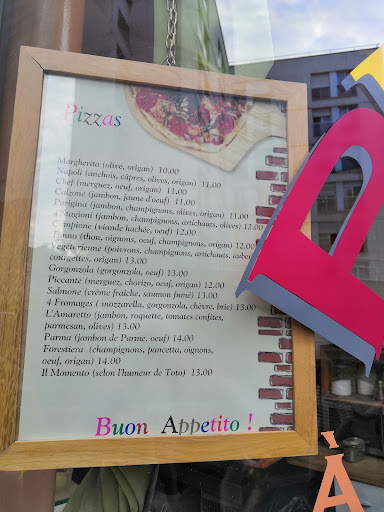 Pizzas
Margherita (olive, origan) 10.00
Napoli (anchois, câpres, olives, origan) 11.00
Chef (merguez, oeuf, origan) 11.00
Calzone (jambon, jaune d'oeuf) 11.00
Parigina (jambon, champignons, olives, origan) 11.00
4 Stagioni (jambon, champignons, artichauts, olives) 12.00
Campione (viande hachée, oeuf) 12.00
Tonno (thon, oignons, oeuf, champignons, origan) 12.00
Végétarienne (poivrons, champignons, artichauts, auber
courgettes, origan) 13.00
Gorgonzola (gorgonzola, oeuf) 13.00
Piccante (merguez, chorizo, oeuf, origan) 12.00
Salmone (crème fraîche, saumon fumé) 13.00
4 Fromages ( mozzarella, gorgonzola, chèvre, brie) 13.00
L'Amaretto (jambon, roquette, tomates confites,
parmesan, olives) 13.00
Parma (jambon de Parme, oeuf) 14.00
Forestiera (champignons, pancetta, oignons,
oeuf, origan) 14.00
Il Momento (selon l'humeur de Toto) 13.00
Buon Appetito !
P
À